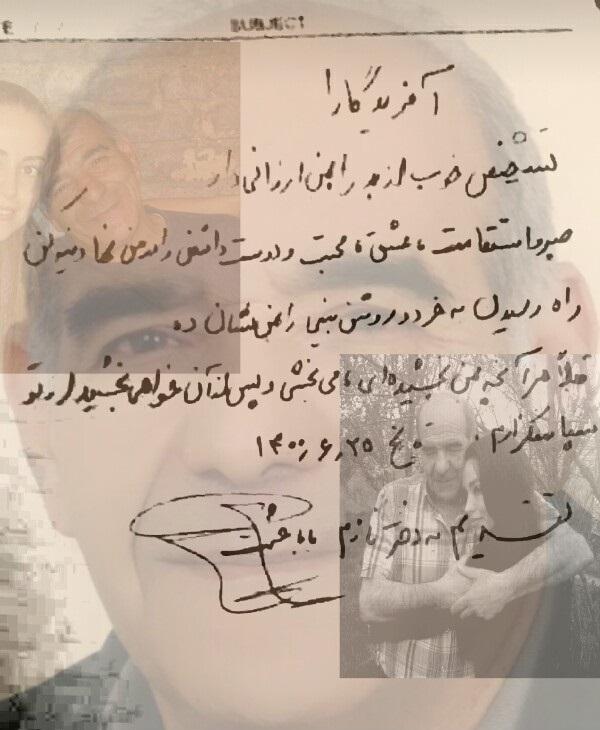 SUBJECT
آفریدگارا
تشخیص خوب از بد را بمن ارزانی دار
صبر و استقامت، عشق، محبت و دوست داشتن را در من نهادینه کن
راه رسیدن به خرد و روشن بینی را بمن نشان ده
قبلاً هر آنچه بمن بخشیده‌ای، می بخشی و پس از آن خواهی بخشید از تو
سپاسگزارم. تاریخ ۱۴۰۰٫۶٫۲۵
تقدیم به دختر نازم بابا